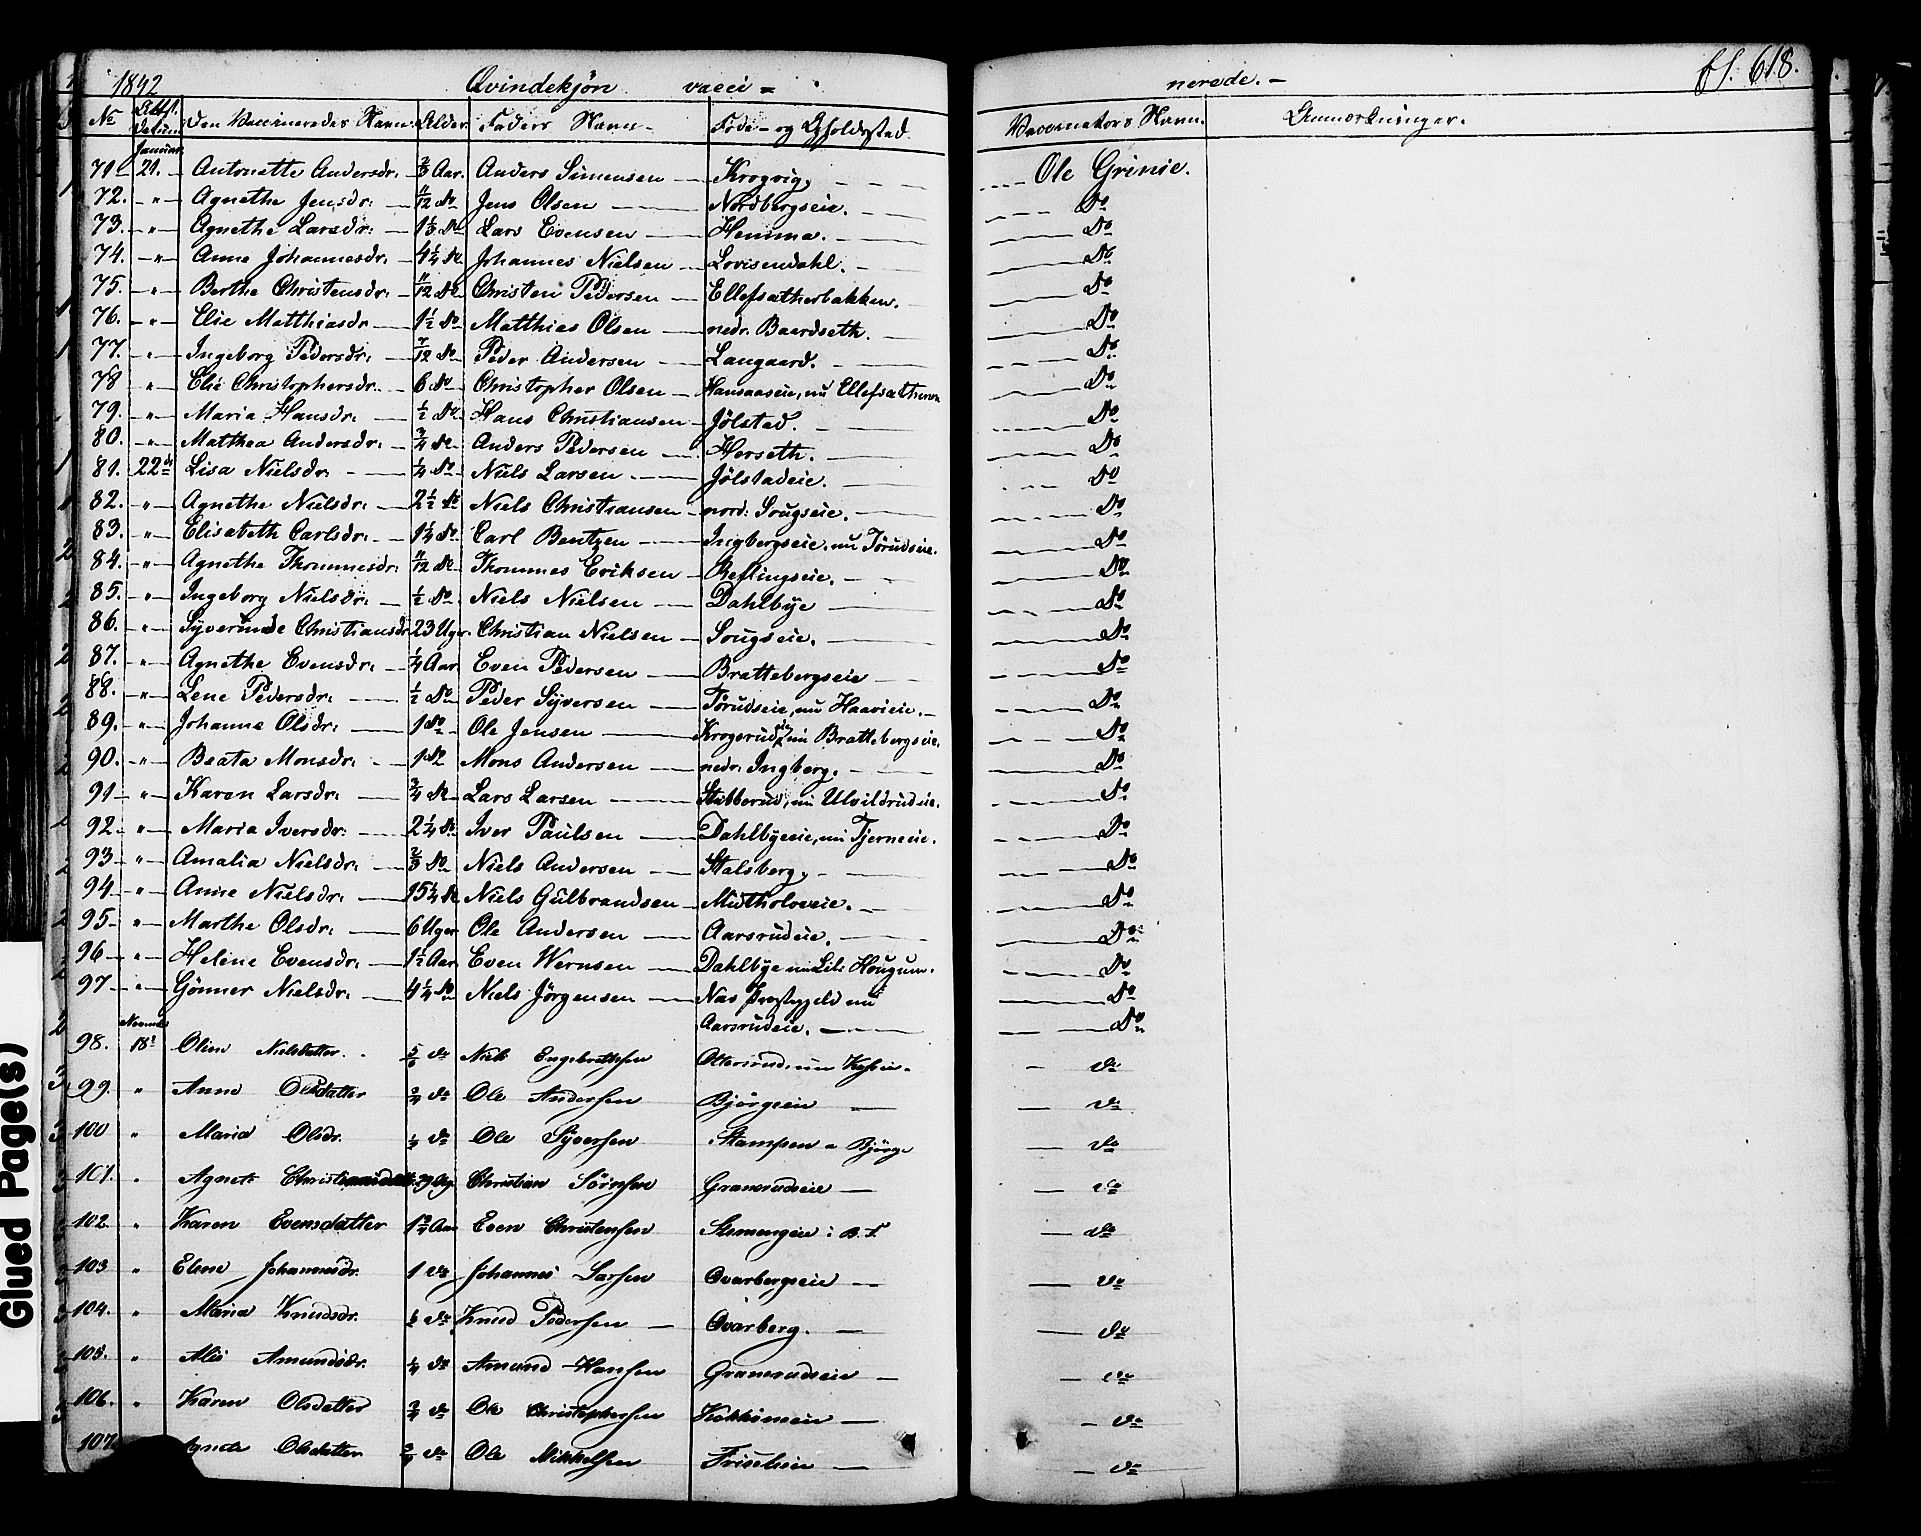 1842 Qvindekjøn vacci= nerede.- fl. 618.
No Attst. Datum Den Vaccineredes Navn. Alder Faders Navn. Føde- og Opholdsstad Vaccinators Navn. Anmærkninger.
Januar
71 21. Antonette Andersdr. 2/3 Aar. Anders Simensen Krogvig. Ole Grinie.
72. " Agnethe Jensdr: 11/12 Do Jens Olsen Nordbergseie. Do
73. " Agnethe Larsdr: 1 1/3 Do Lars Evensen Hemma. Do
74. " Anne Johannesdr. 4 1/4 Do Johannes Nielsen Lovisendahl. Do
75. " Berthe Christensdr. 11/12 Do Christen Pedersen Ellefsætherbakken. Do
76. " Elie Matthiasdr 1 1/2 Do Matthias Olsen nedr. Baardseth. Do
77. " Ingeborg Pedersdr: 7/12 Do Peder Andersen Langaard. Do
78 " Elie Christophersdr. 6 Do Christopher Olsen Hansaaseie, nu Ellefsætheren Do
79. " Maria Hansdr: 1/2 Do Hans Christiansen Jølstad. Do
80. " Matthea Andersdr: 3/4 Do Anders Pedersen Herseth. Do
81. 22de Lisa Nielsdr. 1/4 Do Niels Larsen Jølstadeie. Do
82. " Agnethe Nielsdr: 2 1/2 Do Niels Christiansen nord: Sougseie. Do
83. " Elisabeth Carlsdr. 1 1/4 Do Carl Bentzen Ingbergseie, nu Tørudseie. Do
84. " Agnethe Thommesdr: 11/12 Do Thommes Eriksen Reflingseie. Do
85. " Ingeborg Nielsdr. 1/2 Do Niels Nielsen Dahlbye Do
86. " Syverinde Christiansdr 23 Uger. Christian Nielsen Sougseie. Do
87. " Agnethe Evensdr: 1/4 Aar Even Pedersen Brattebergseie Do
88. " Lene Pedersdr: 1/2 Do Peder Syversen Tørudseie, nu Haavieie. Do
89. " Johanne Olsdr: 1 Do Ole Jensen Krogerud, nu Brattebergseie. Do
90. " Beata Monsdr: 1 Do Mons Andersen nedr: Ingberg. Do
91 " Karen Larsdr: 3/4 Do Lars Larsen Stubberud, nu Ulvildrudeie. Do
92. " Maria Iversdr: 2 1/4 Do Iver Paulsen Dahlbyeeie, nu Tjerneie. Do
93 " Amalia Nielsdr: 2/3 Do Niels Andersen Stalsberg. Do
94 " Anne Nielsdr: 15 1/4 Do Niels Gulbrandsen Midtholoeeie. Do
95 " Marthe Olsdr: 6 Uger Ole Andersen Aarsrudeie. Do
96 " Helene Evensdr: 1 1/2 Aar. Even Wernsen Dahlbye nu Lil: Hougum. Do
97 " Gønner Nielsdr: 4 1/4 Do Niels Jørgensen Næs Præstegjeld nu Do
Aarsrudeie. Do
98. 18de Oline Nielsdatter. 5/6 do Niels Engebrethsen do
99. " Anne Olsdatter 3/4 do Ole Andersen Bjørgeeie do
100 " Maria Olsdr. 1/2 do Ole Syversen Stampen u Bjørge do
101. " Agnete Christiansdatter 39 Ug. Christian Sørensen Granerudseie do
102. " Karen Evensdatter 1 3/4 Aar Even Christensen i B. F. do
103 " Elene Johannesdr. 1 do Johannes Larsen Ovarbergseie do
104. " Maria Knudsdr. 1/2 do Knud Pedersen Ovarberg. do
105. " Alis Amundsdr. 1/4 do Amund Hansen Granerudseie do
106. " Karen Olsdatter 3/4 do Ole Christophersen do
107 Olsdatter 3/4 do Ole Mikkelsen do
Glued Page(s)